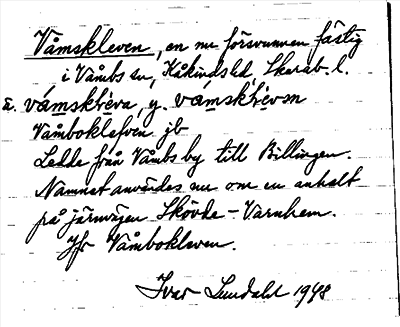 Våmskleven, en nu försvunnen fästig
i Våmbs sn, Kåkinds hd, Skarab. l.
ä. våmsklèva y. våmsklèvən
Våmboklefven jb
Ledde från Våmbs by till Billingen.
Namnet användes nu om en anhalt
på järnvägen Skövde - Varnhem.
Jfr Våmbokleven.
Ivar Lundahl 1948